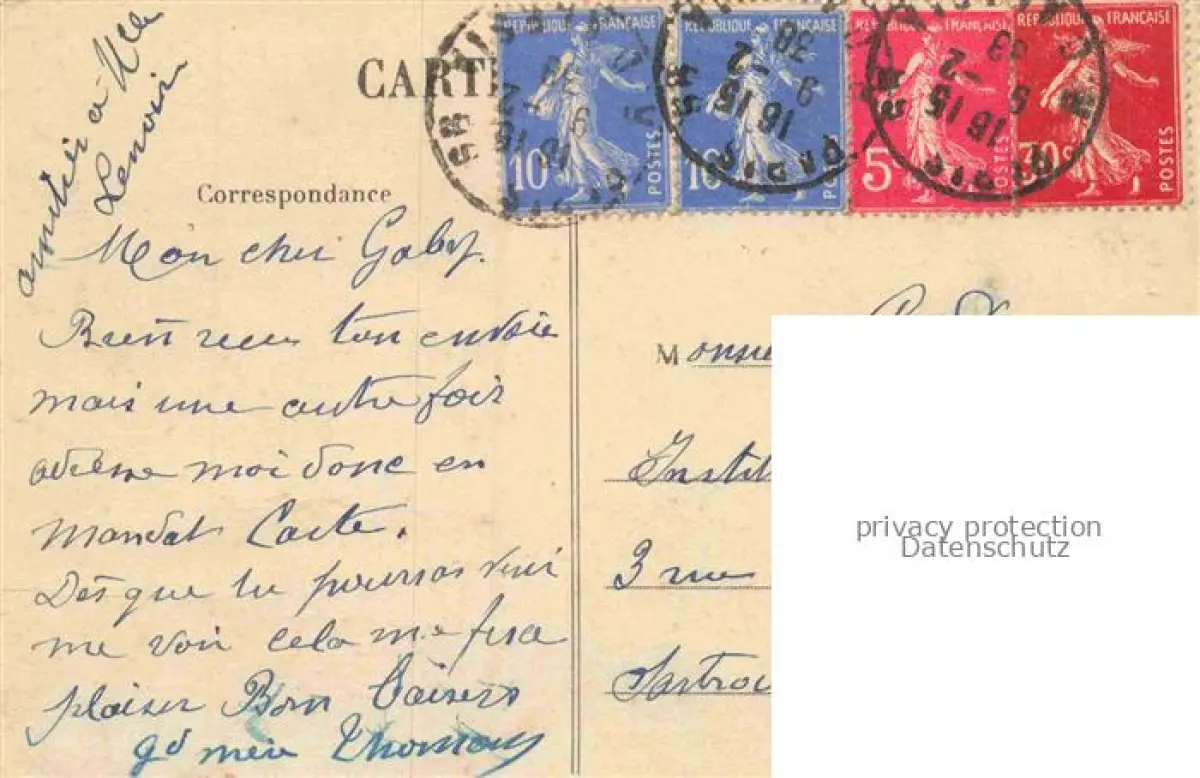 amitié à Mlle
Lenoir
CARTE
Correspondance
Mon cher Gaby.
Bien reçu ton envoie
mais une autre fois
adresse moi donc en
Mandat Carte.
Dès que tu pourras venir
me voir cela me fera
plaisir Bons Baisers
gd mère
REPUBLIQUE FRANÇAISE
10
POSTES
REPUBLIQUE FRANÇAISE
10
POSTES
REPUBLIQUE FRANÇAISE
5
POSTES
REPUBLIQUE FRANÇAISE
30c
POSTES
PARIS
16 15
9 -2
38
PARIS
16 15
9 -2
PARIS
16 15
-2
Monsieur
Instit
3 rue
Sartrou
privacy protection
Datenschutz